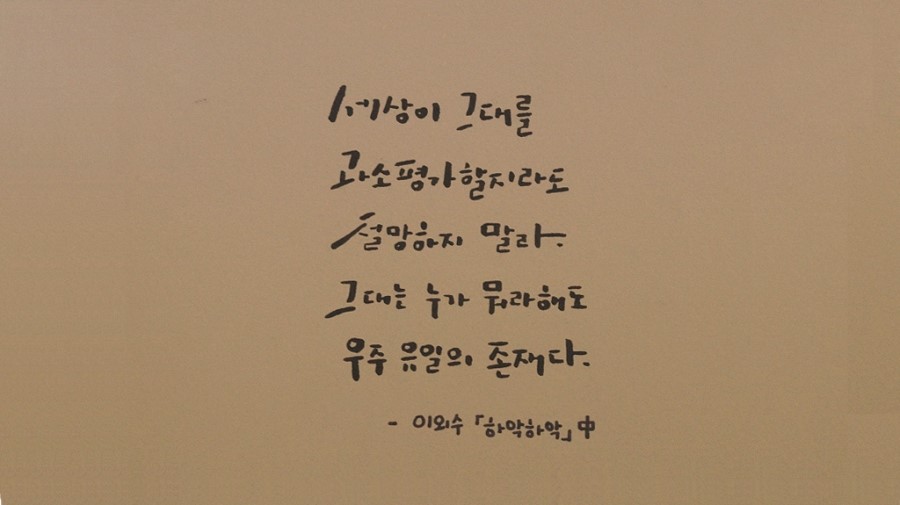 세상이 그대를
과소평가할지라도
절망하지 말라.
그대는 누가 뭐라해도
우주 유일의 존재다.
- 이외수 「하악하악」 中